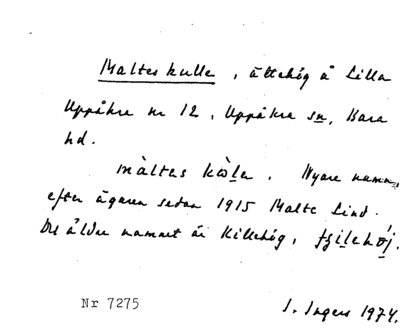 Maltes kulle, ättehög å Lilla
Uppåkra nr 12, Uppåkra sn, Bara
hd.
màltas kɷ̀lla. Nyare namn,
efter ägaren sedan 1915 Malte Lind.
Det äldre namnet är Killehög,
Nr 7275
I. Ingers 1974.